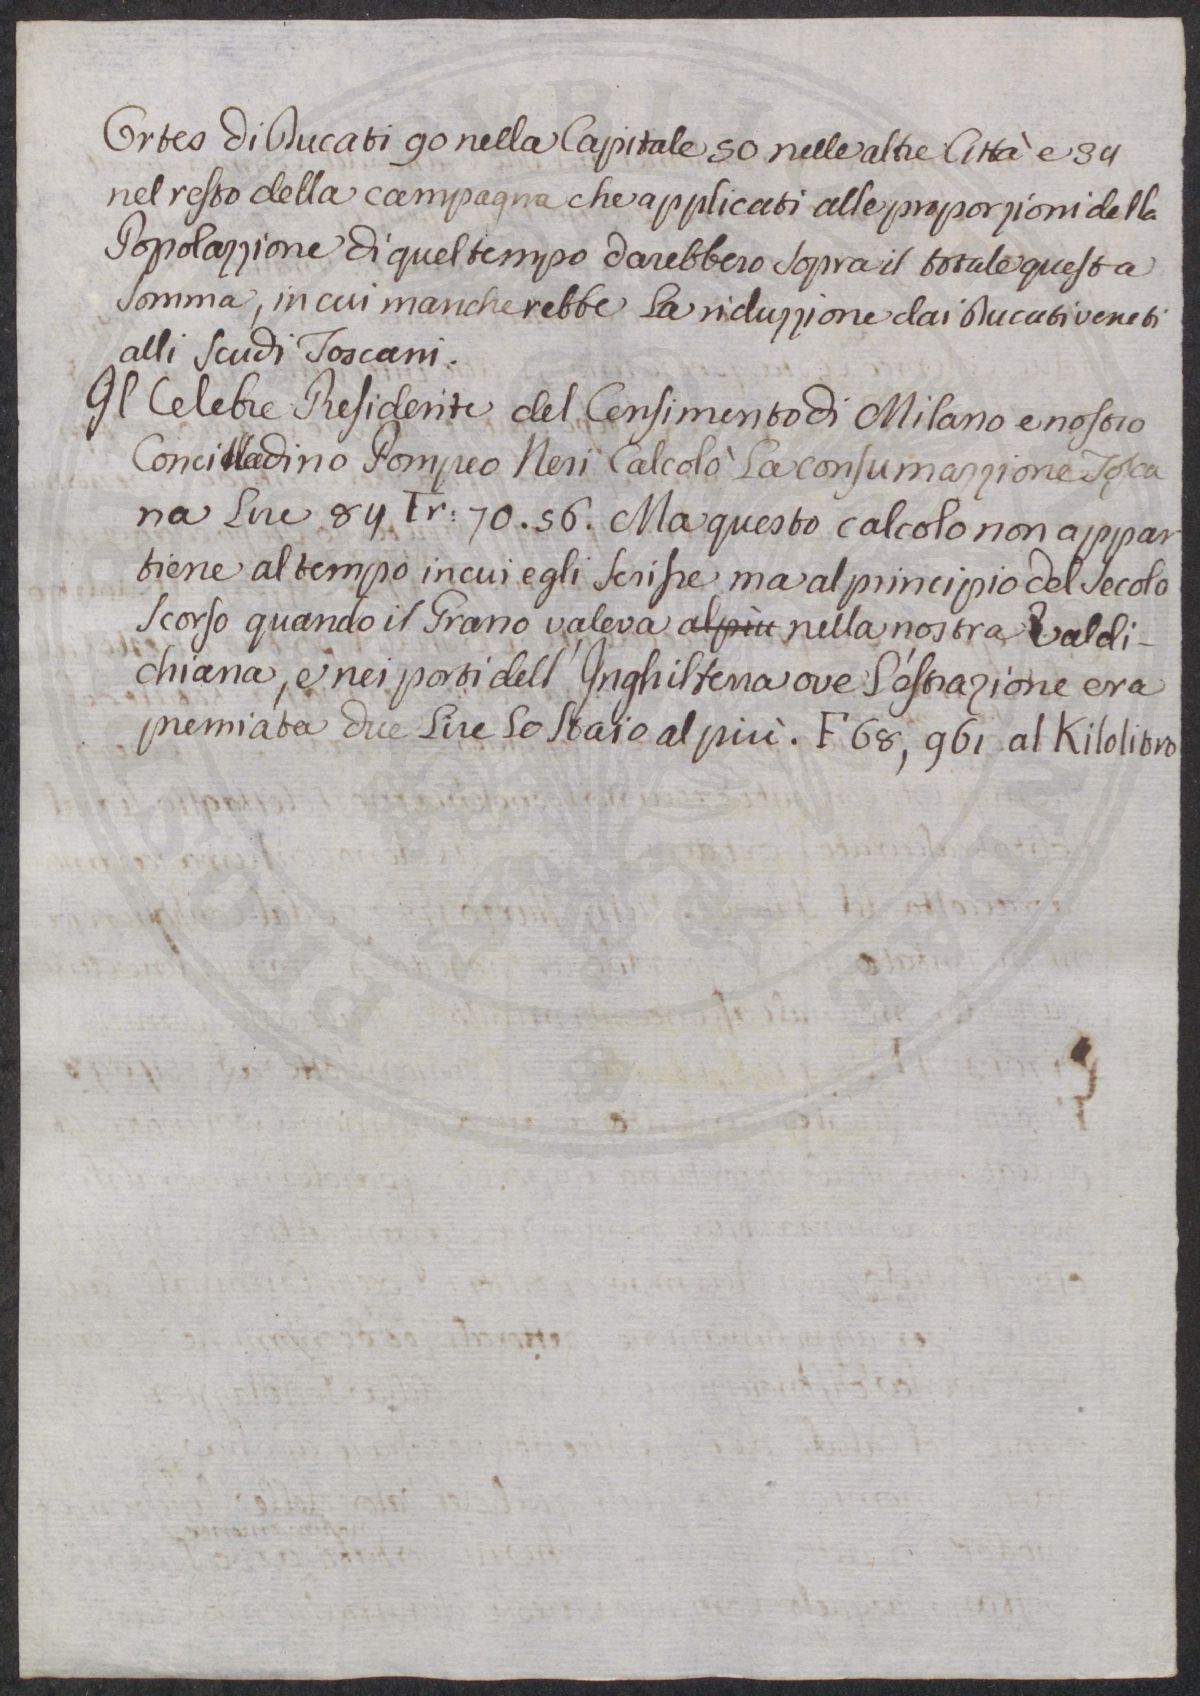 Ortes di Ducati 90 nella Capitale 50 nelle altre Città e 34
nel resto della campagna che applicati alle proporzioni della
Popolazzione di quel tempo darebbero sopra il totale questa
somma, in cui mancherebbe la riduzzione dai Ducati veneti
alli Scudi Toscani.
Il Celebre Presidente del Censimento di Milano e nostro
Concittadino Pompeo Neri Calcolò La consumazzione Tosca
na Lire 84 Fr: 70.56. Ma questo calcolo non appar
tiene al tempo in cui egli scrisse ma al principio del secolo
scorso quando il Grano valeva al piu nella nostra Valdi-
chiana, e nei porti dell'Inghilterra ove L'estrazione era
premiata due Lire Lo Staio al più. F 68,961 al Kilolitro